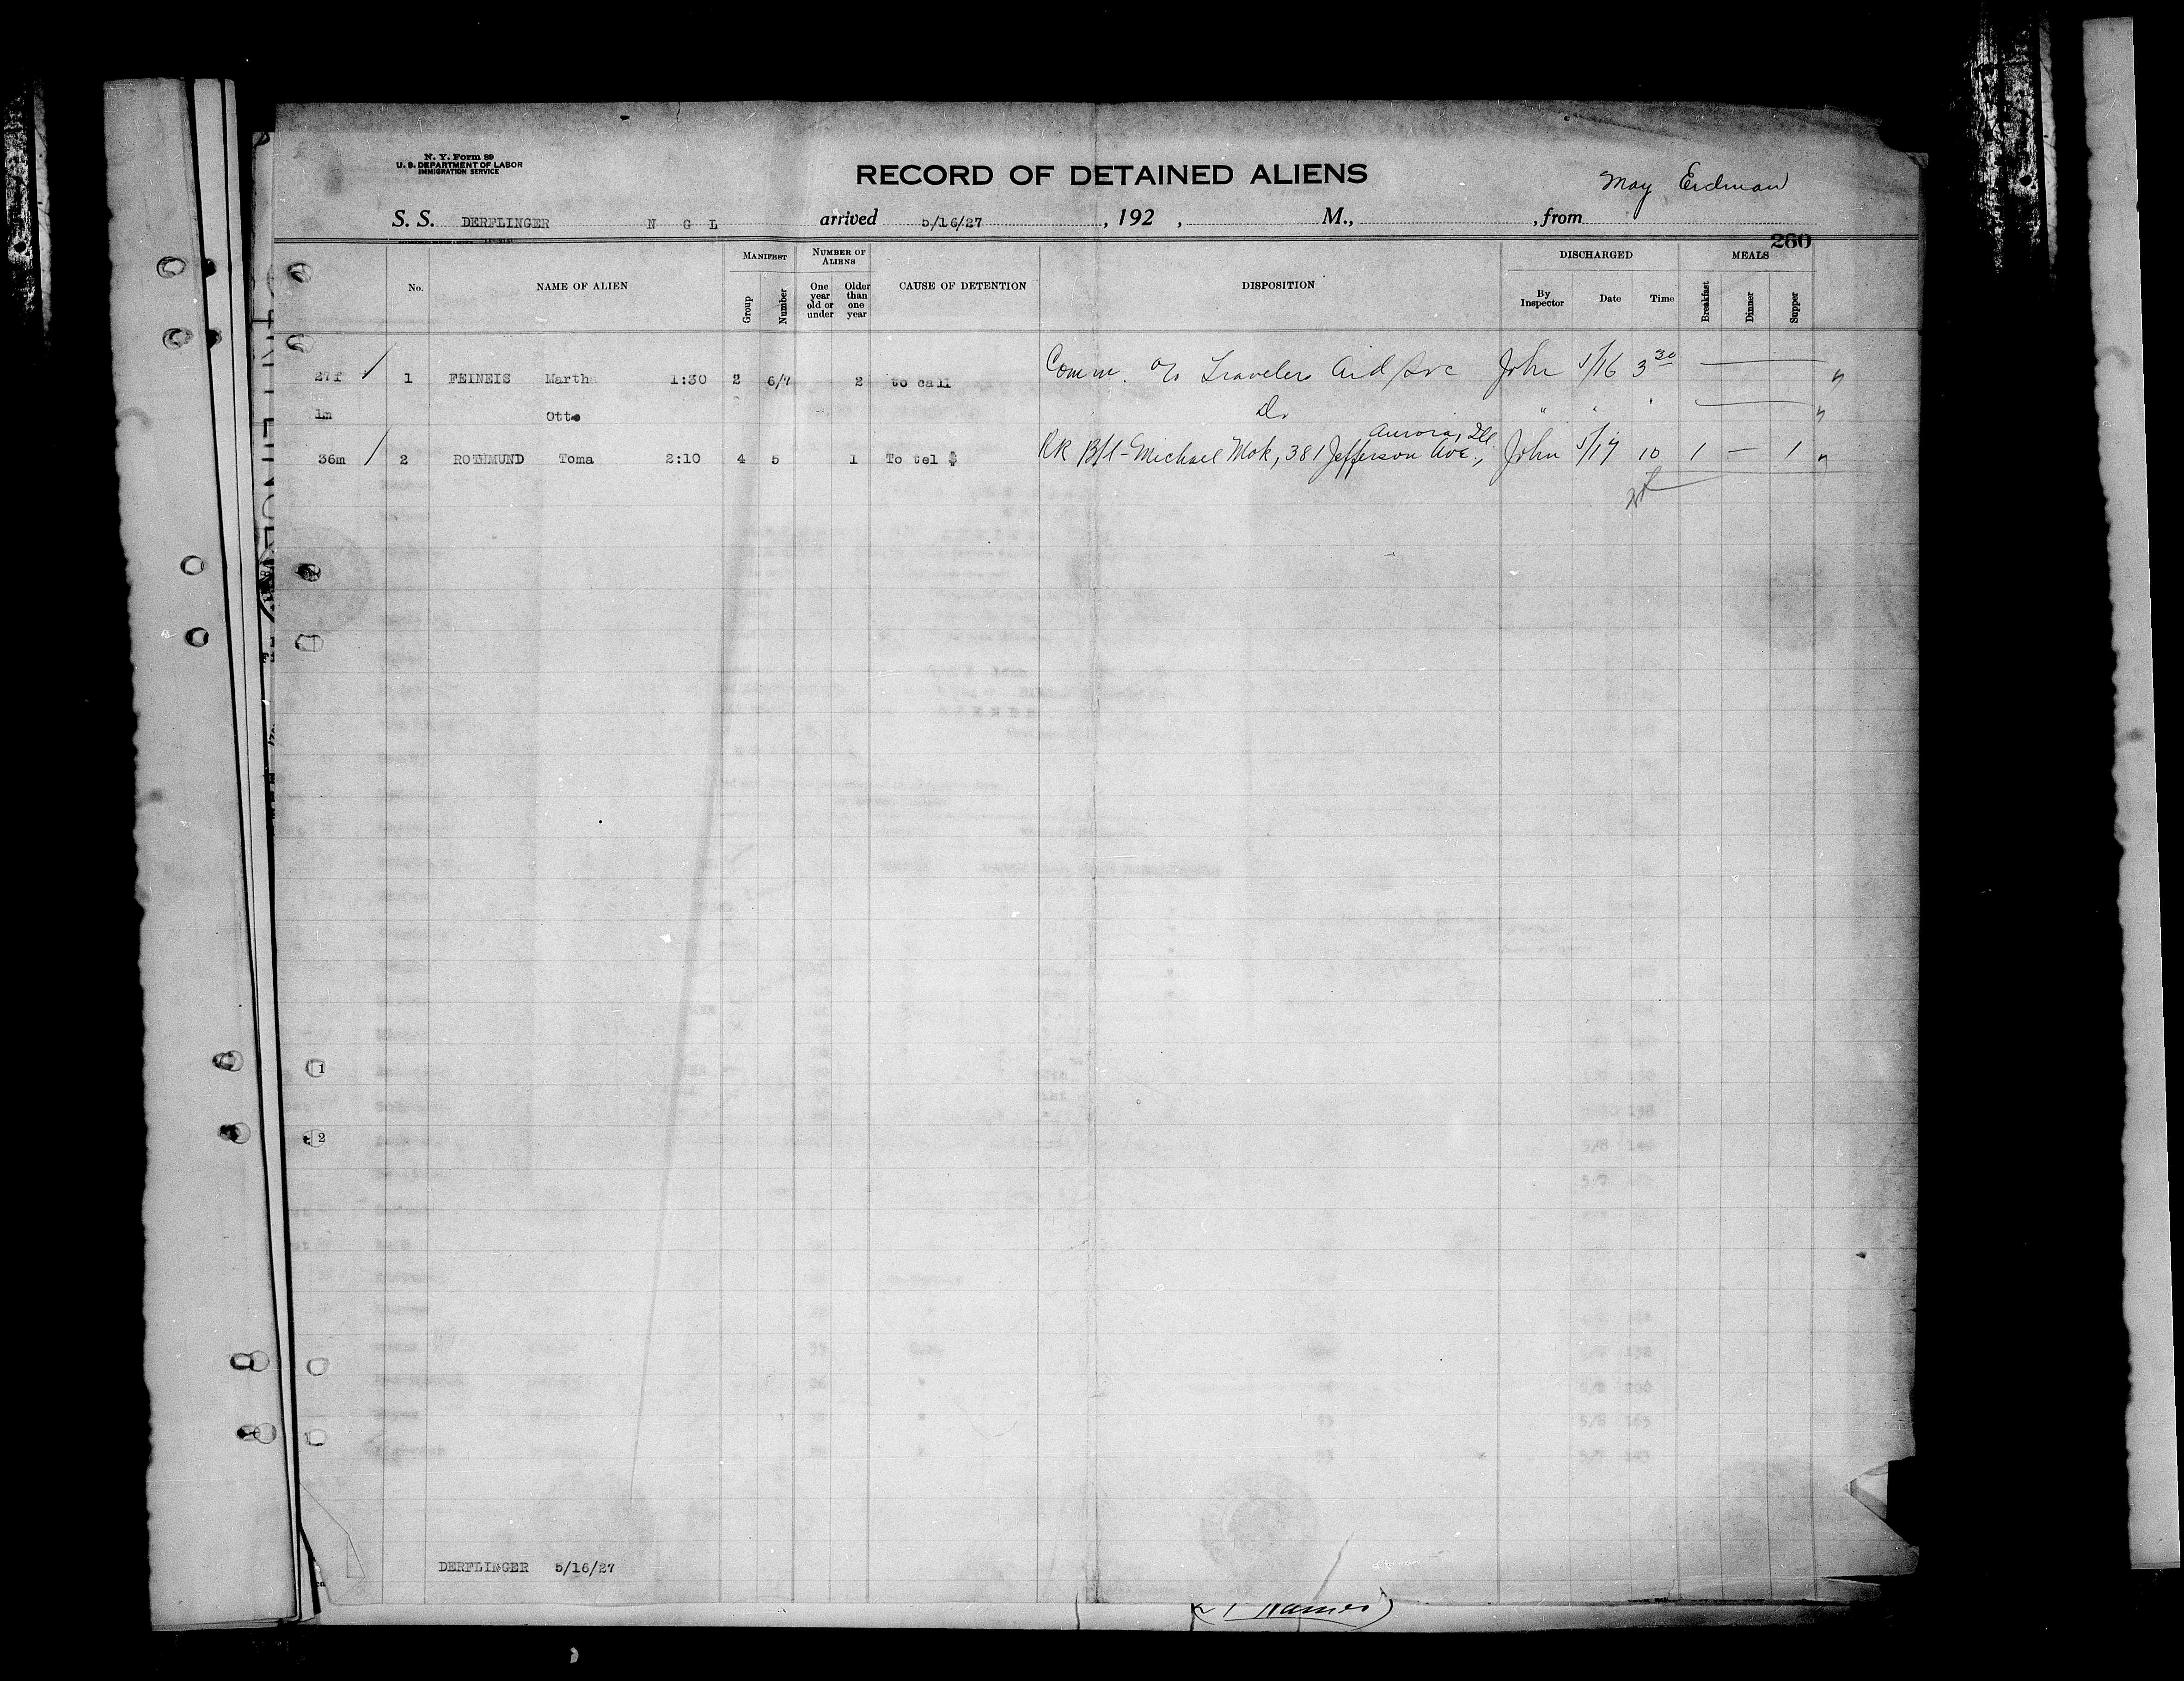 N. Y. Form 89
U. S. DEPARTMENT OF LABOR
IMMIGRATION SERVICE
RECORD OF DETAINED ALIENS
May Erdman
S. S. DERFLINGER N G L arrived 5/16/27, 192 , M., , from
260
No. NAME OF ALIEN MANIFEST Group Number NUMBER OF ALIENS One year old or under Older than one year CAUSE OF DETENTION DISPOSITION DISCHARGED By Inspector Date Time MEALS Breakfast Dinner Supper
27f / 1 FEINEIS Martha 1:30 2 6/7 2 to call Comm. c/o Travelers Aid Soc John 5/16 3 30 —
1m Otto Do " " " —
Aurora, Ill.
36m / 2 ROTHMUND Toma 2:10 4 5 1 To tel $ RR Bfl - Michael Mok, 381 Jefferson Ave., John 5/17 10 1 — 1
1
2
5/8
5/7
5/8 163
DERFLINGER 5/16/27
Names)